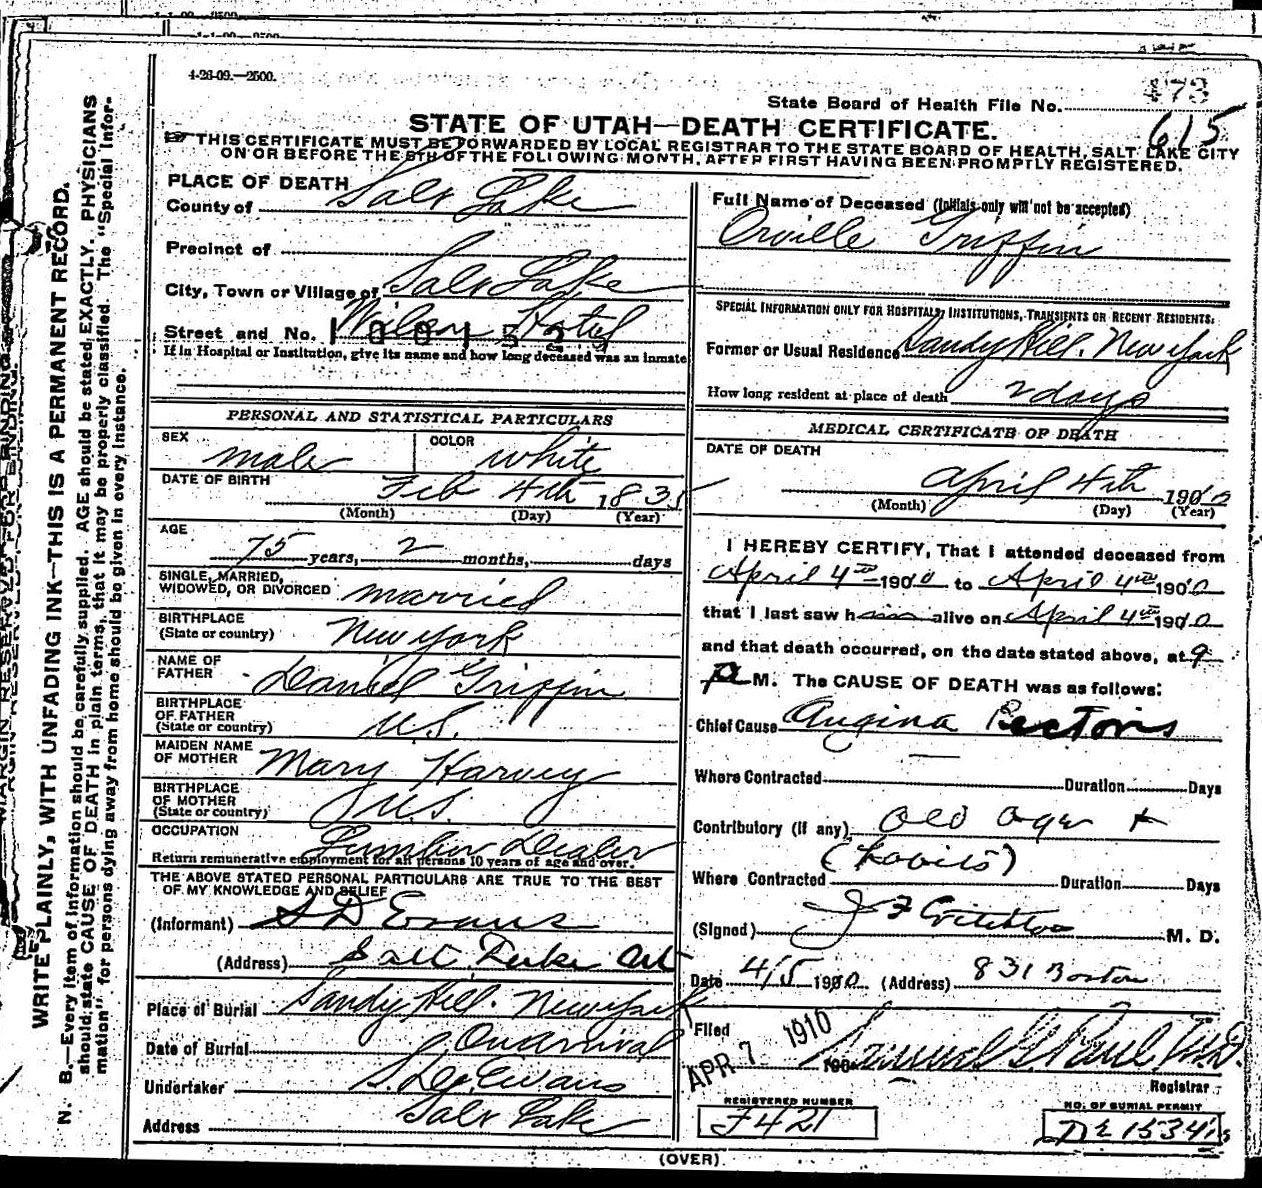 4-26-09.—2500.
473
State Board of Health File No.
615
STATE OF UTAH—DEATH CERTIFICATE.
THIS CERTIFICATE MUST BE FORWARDED BY LOCAL REGISTRAR TO THE STATE BOARD OF HEALTH, SALT LAKE CITY
ON OR BEFORE THE 5TH OF THE FOLLOWING MONTH, AFTER FIRST HAVING BEEN PROMPTLY REGISTERED.
WRITE PLAINLY, WITH UNFADING INK—THIS IS A PERMANENT RECORD.
N. B.—Every item of information should be carefully supplied. AGE should be stated EXACTLY. PHYSICIANS
should state CAUSE OF DEATH in plain terms, that it may be properly classified. The "Special Infor-
mation" for persons dying away from home should be given in every instance.
PLACE OF DEATH
County of Salt Lake
Precinct of
City, Town or Village of Salt Lake
Street and No. Wilson Hotel
100152
If in Hospital or Institution, give its name and how long deceased was an inmate
PERSONAL AND STATISTICAL PARTICULARS
SEX male COLOR white
DATE OF BIRTH Feb 4th 1835
(Month) (Day) (Year)
AGE
75 years, 2 months, days
SINGLE, MARRIED,
WIDOWED, OR DIVORCED married
BIRTHPLACE
(State or country) New York
NAME OF
FATHER Daniel Griffin
BIRTHPLACE
OF FATHER
(State or country) U.S.
MAIDEN NAME
OF MOTHER Mary Harvey
BIRTHPLACE
OF MOTHER
(State or country) U.S.
OCCUPATION Lumber Dealer
Return remunerative employment for all persons 10 years of age and over.
THE ABOVE STATED PERSONAL PARTICULARS ARE TRUE TO THE BEST
OF MY KNOWLEDGE AND BELIEF
(Informant) S D Evans
(Address) Salt Lake
Place of Burial Sandy Hill. New York
Date of Burial On arrival
Undertaker S. D. Evans
Address Salt Lake
Full Name of Deceased (Initials only will not be accepted)
Orville Griffin
SPECIAL INFORMATION ONLY FOR HOSPITALS, INSTITUTIONS, TRANSIENTS OR RECENT RESIDENTS:
Former or Usual Residence Sandy Hill. New York
How long resident at place of death 2 days
MEDICAL CERTIFICATE OF DEATH
DATE OF DEATH
April 4th 1910
(Month) (Day) (Year)
I HEREBY CERTIFY, That I attended deceased from
April 4th 1910 to April 4th 1910
that I last saw him alive on April 4th 1910
and that death occurred, on the date stated above, at 9
P M. The CAUSE OF DEATH was as follows:
Chief Cause Angina Pectoris
Where Contracted Duration Days
Contributory (if any) Old age +
Where Contracted Duration Days
(Signed) J F Critchlow M. D.
Date 4/5 1910 (Address) 831 Boston
Filed
APR 7 1910
190 Samuel G. Paul, M.D.
Registrar
REGISTERED NUMBER
F421
NO. OF BURIAL PERMIT
(OVER)